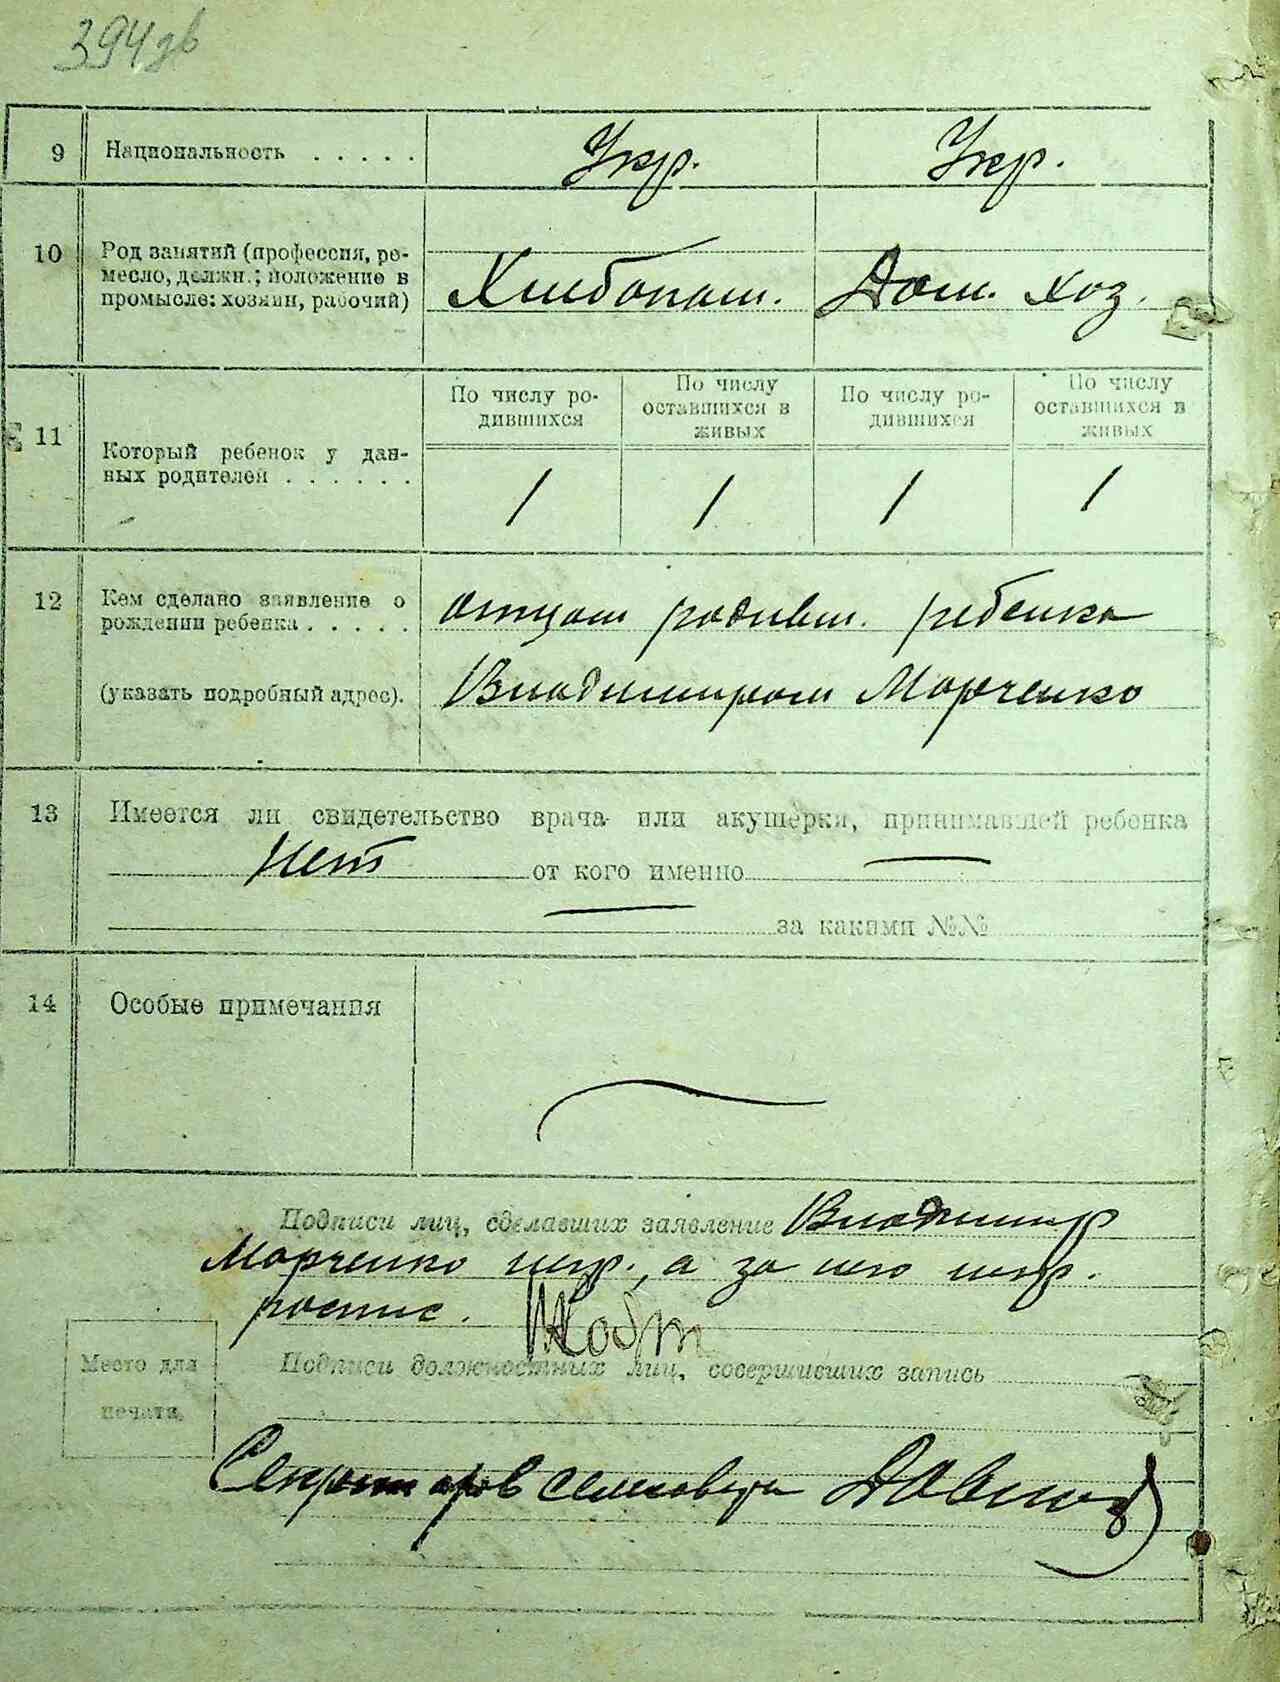 394 зв
9 Национальность . . . . . Укр. Укр.
10 Род занятий (профессия, ре-
месло, должн.; положение в
промысле: хозяин, рабочий)
Хлебопаш. Дом. хоз.
11 Который ребенок у дан-
ных родителей . . . . . .
По числу ро-
дившихся
По числу
оставшихся в
живых
По числу ро-
дившихся
По числу
оставшихся в
живых
1 1 1 1
12 Кем сделано заявление о
рождении ребенка . . . . .
(указать подробный адрес).
отцом родивш. ребенка
Владимиром Марченко
13 Имеется ли свидетельство врача или акушерки, принимавшей ребенка
нет от кого именно
за какими №№
14 Особые примечания
Подписи лиц, сделавших заявление Владимир
Марченко негр., а за него негр.
роспис.
Подписи должностных лиц, совершивших запись
Место для
печати.
сельсовета